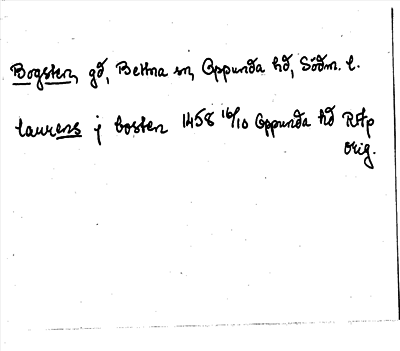 Bogsten, gd, Bettna sn, Oppunda hd, Södm. l.
laurens j bosten 1458 16/10 Oppunda hd RAp
orig.